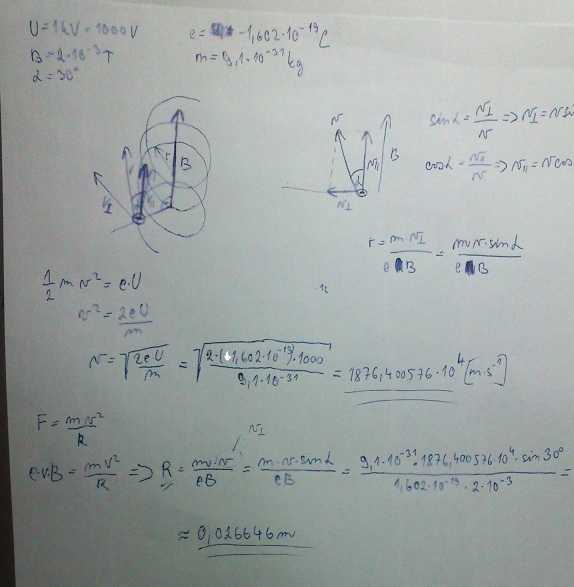 U = 1kV = 1000V
e = -1,602·10⁻¹⁹ C
B = 2·10⁻³ T
m = 9,1·10⁻³¹ kg
α = 30°
sinα = v⊥/v => v⊥ = v sin
cosα = v∥/v => v∥ = v cos
v
v∥
B
α
v⊥
r
B
r = m v⊥/e B = m v·sinα/e B
1/2 m v² = e·U
v² = 2eU/m
v = √(2eU/m) = √(2·(1,602·10⁻¹⁹)·1000/9,1·10⁻³¹) = 1876,400576·10⁴ [m·s⁻¹]
F = mv²/R
v⊥
e·v·B = mv²/R => R = m·v/eB = m·v·sinα/eB = 9,1·10⁻³¹·1876,400576·10⁴·sin 30°/1,602·10⁻¹⁹·2·10⁻³ =
≈ 0,026646 m